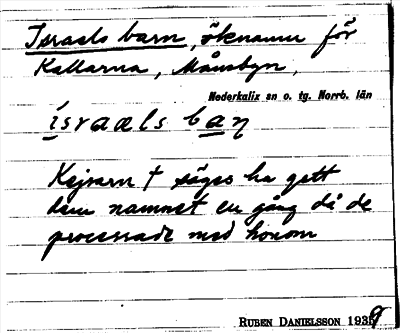 Israels barn, öknamn för
Kallarna, Månsbyn,
Nederkalix sn o. tg. Norrb. län
israels baɳ
Kejsarn † säges ha gett
dem namnet en gång då de
processade med honom
RUBEN DANIELSSON 1939